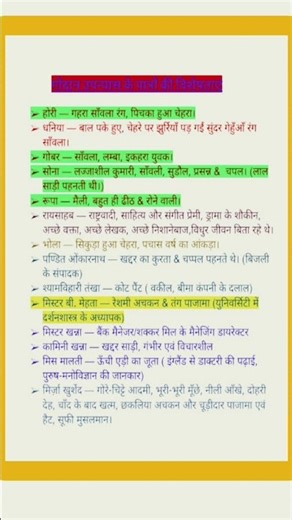 गोदान उपन्यास के पात्रों की विशेषताएं
➢ होरी — गहरा साँवला रंग, पिचका हुआ चेहरा।
➢ धनिया — बाल पके हुए, चेहरे पर झुर्रियाँ पड़ गईं सुंदर गेहुँआँ रंग
साँवला।
➢ गोबर — साँवला, लम्बा, इकहरा युवक।
➢ सोना — लज्जाशील कुमारी, साँवली, सुडौल, प्रसन्न & चपल। (लाल
साड़ी पहनती थी।)
➢ रूपा — मैली, बहुत ही ढीठ & रोने वाली।
➢ रायसाहब — राष्ट्रवादी, साहित्य और संगीत प्रेमी, ड्रामा के शौकीन,
अच्छे वक्ता, अच्छे लेखक, अच्छे निशानेबाज,विधुर जीवन बिता रहे थे।
➢ भोला — सिकुड़ा हुआ चेहरा, पचास वर्ष का आंकड़ा।
➢ पण्डित ओंकारनाथ — खद्दर का कुरता & चप्पल पहनते थे। (बिजली
के संपादक)
➢ श्यामविहारी तंखा — कोट पैंट ( वकील, बीमा कंपनी के दलाल)
➢ मिस्टर बी. मेहता — रेशमी अचकन & तंग पाजामा (युनिवर्सिटी में
दर्शनशास्त्र के अध्यापक)
➢ मिस्टर खन्ना — बैंक मैनेजर/शक्कर मिल के मैनेजिंग डायरेक्टर
➢ कामिनी खन्ना — खद्दर साड़ी, गंभीर एवं विचारशील
➢ मिस मालती — ऊँची एड़ी का जूता ( इंग्लैंड से डाक्टरी की पढ़ाई,
पुरुष-मनोविज्ञान की जानकार)
➢ मिर्ज़ा खुर्शेद — गोरे-चिट्टे आदमी, भूरी-भूरी मूँछे, नीली आँखे, दोहरी
देह, चाँद के बाद खत्म, छकलिया अचकन और चूड़ीदार पाजामा एवं
हैट, सूफी मुसलमान।